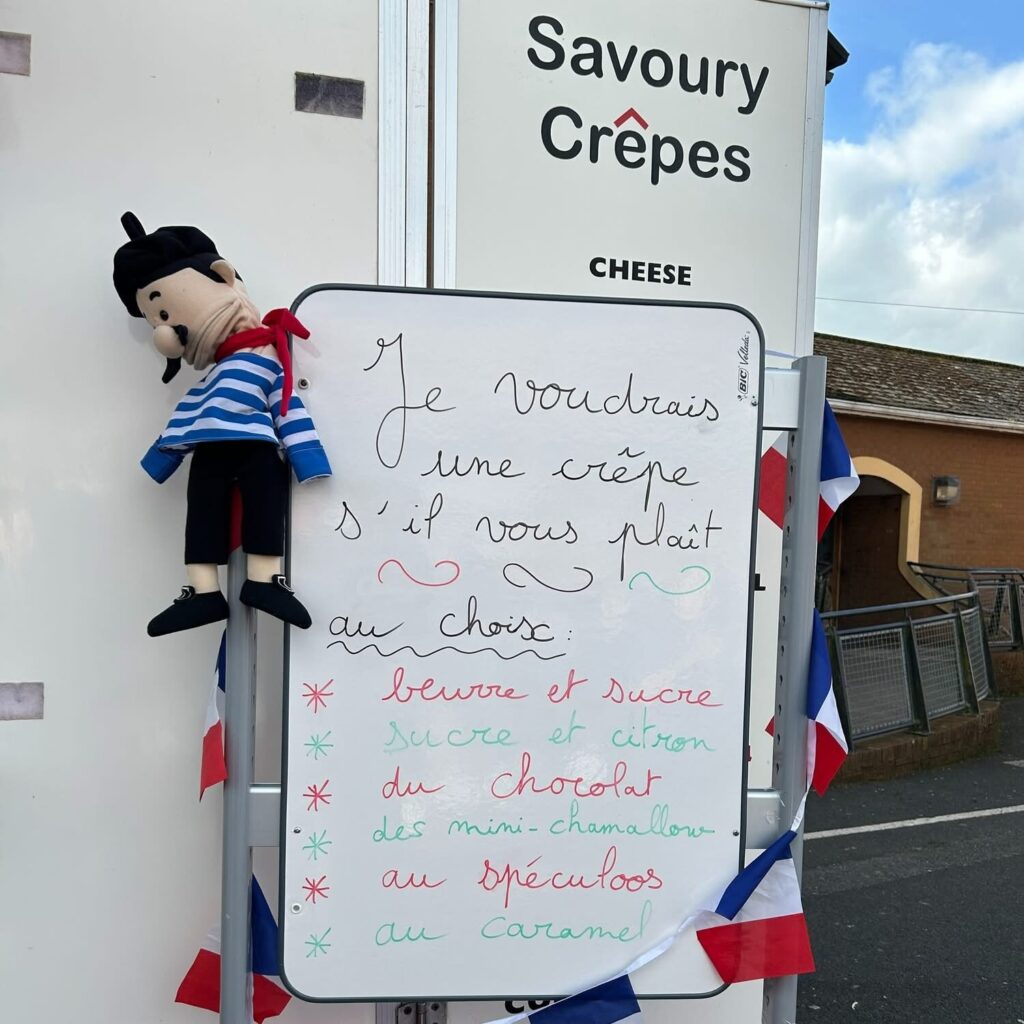 Savoury
Crêpes
CHEESE
BIC Velleda
Je voudrais
une crêpe
s'il vous plaît
au choix :
* beurre et sucre
* sucre et citron
* du chocolat
* des mini-chamallow
* au spéculoos
* au caramel